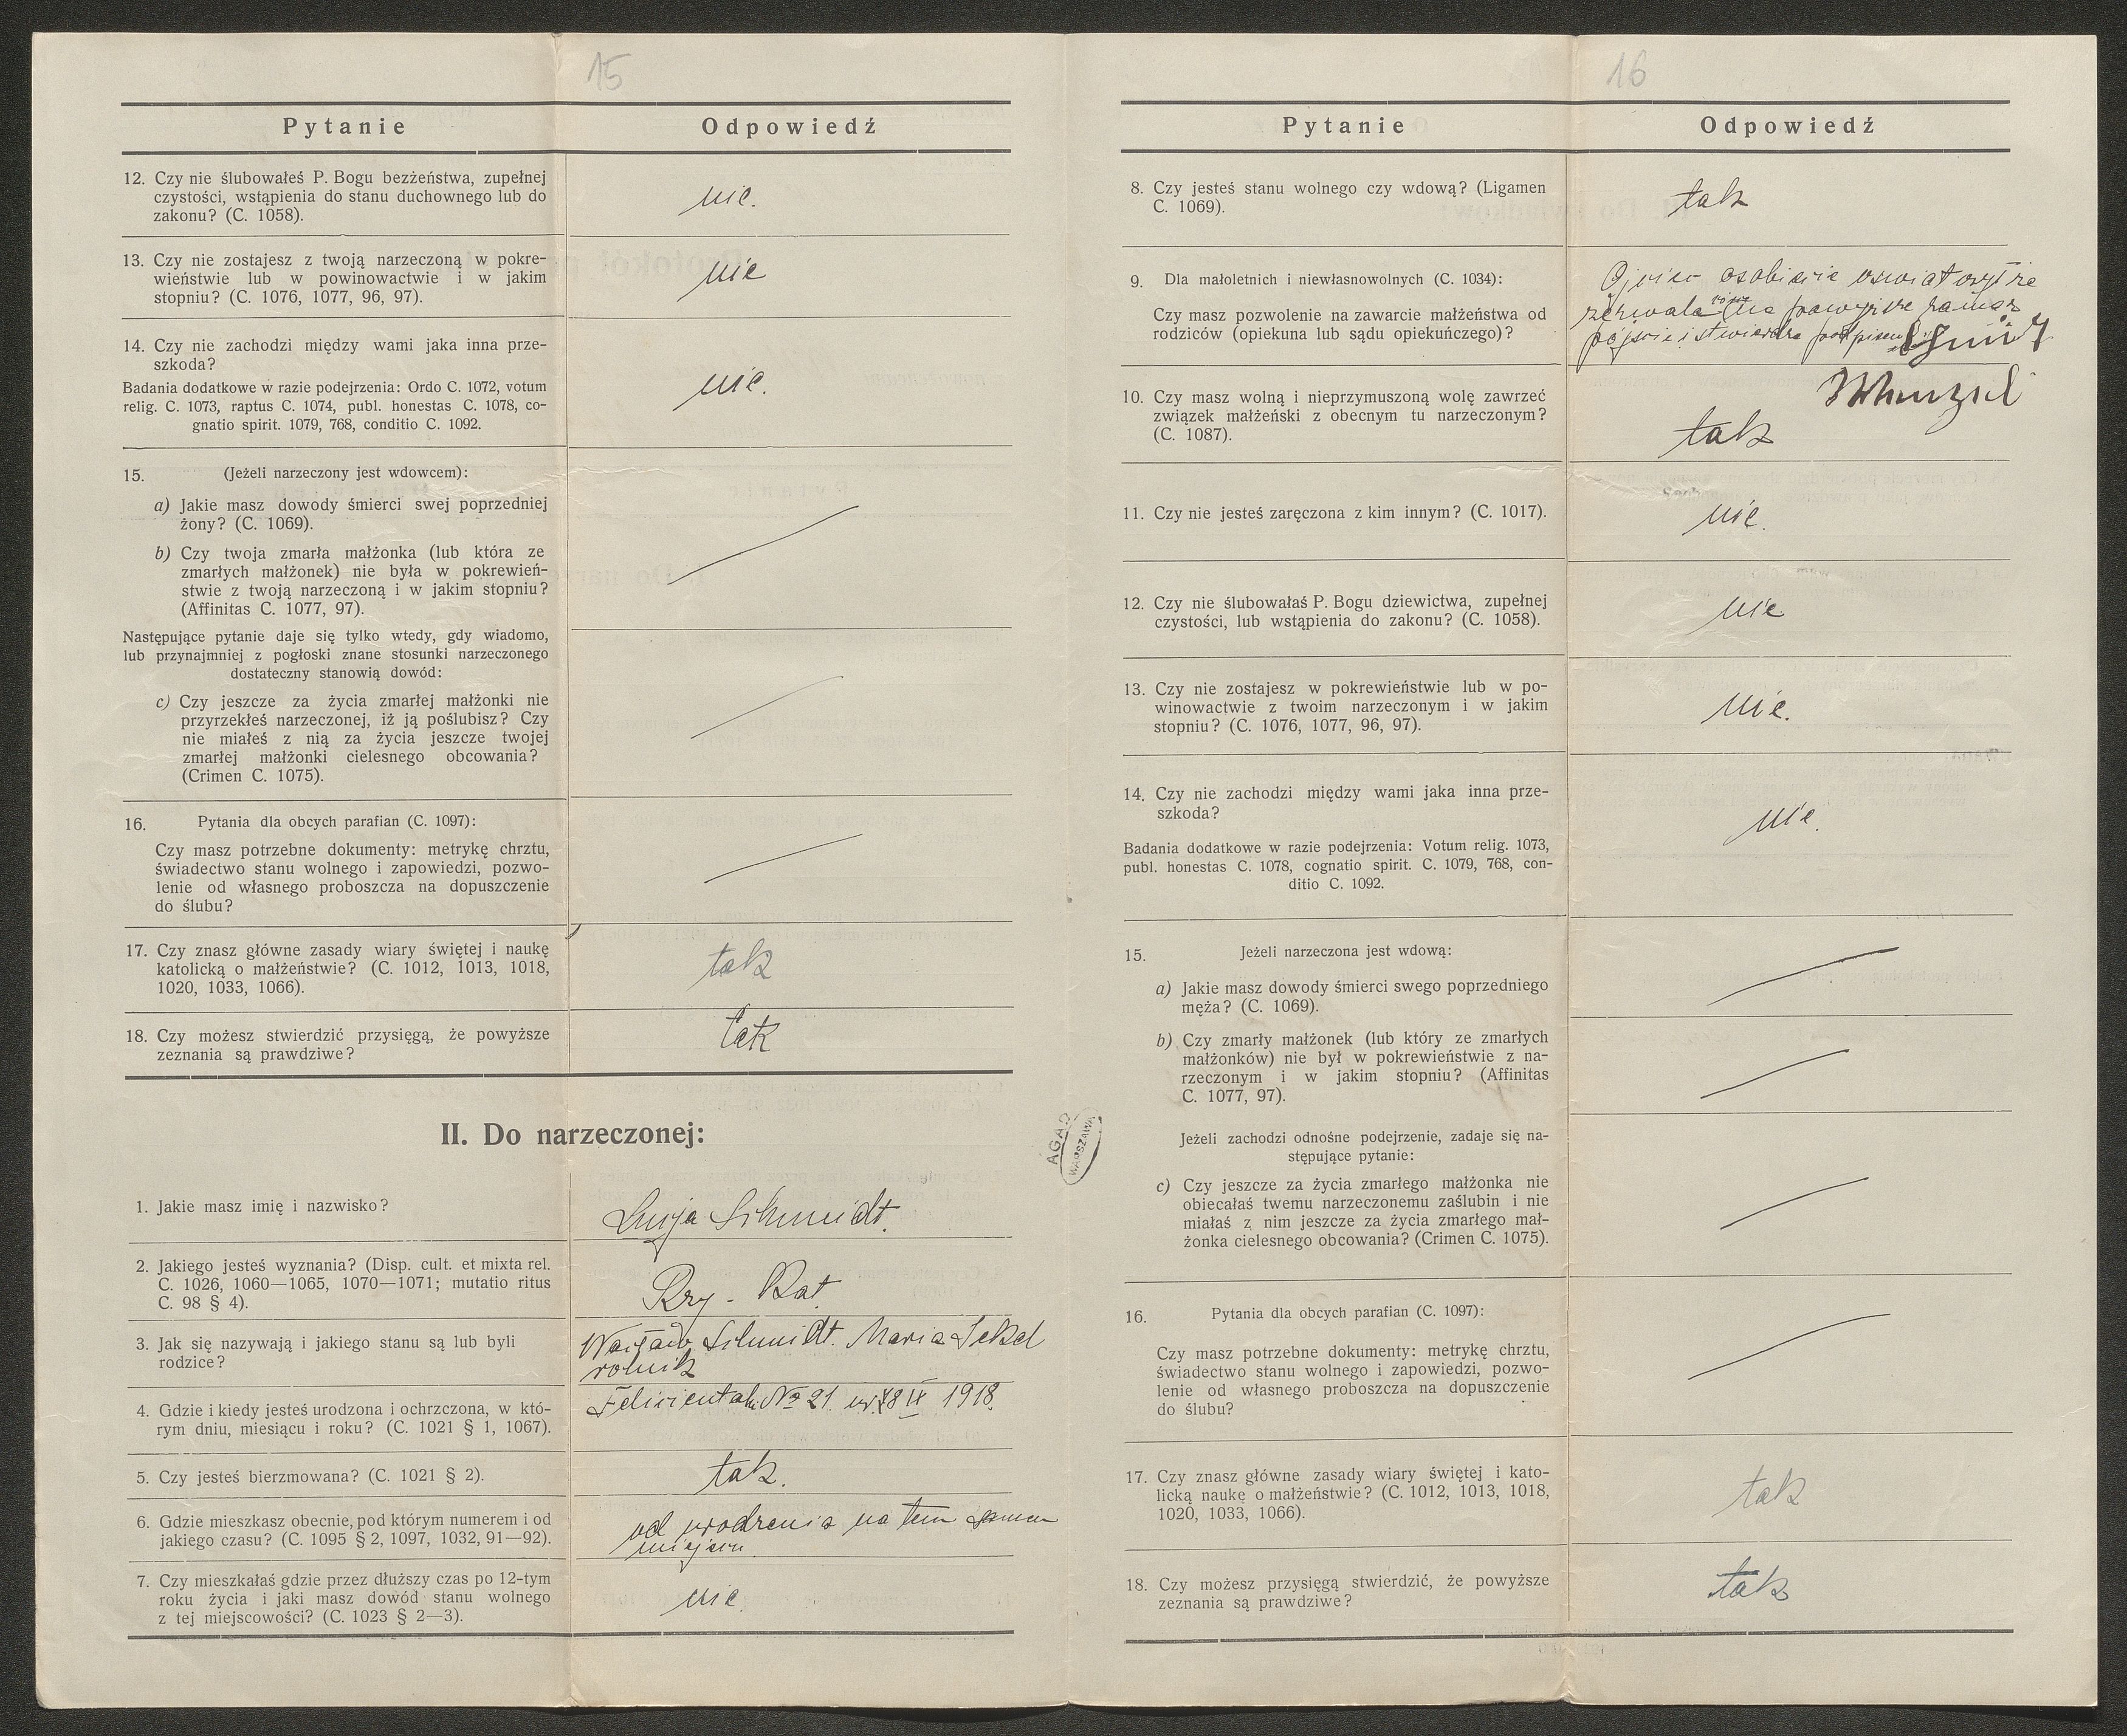 15
Pytanie
Odpowiedź
12. Czy nie ślubowałeś P. Bogu bezżeństwa, zupełnej
czystości, wstąpienia do stanu duchownego lub do
zakonu? (C. 1058).
nie.
13. Czy nie zostajesz z twoją narzeczoną w pokre-
wieństwie lub w powinowactwie i w jakim
stopniu? (C. 1076, 1077, 96, 97).
nie
14. Czy nie zachodzi między wami jaka inna prze-
szkoda?
Badania dodatkowe w razie podejrzenia: Ordo C. 1072, votum
relig. C. 1073, raptus C. 1074, publ. honestas C. 1078, co-
gnatio spirit. 1079, 768, conditio C. 1092.
nie.
15. (Jeżeli narzeczony jest wdowcem):
a) Jakie masz dowody śmierci swej poprzedniej
żony? (C. 1069).
b) Czy twoja zmarła małżonka (lub która ze
zmarłych małżonek) nie była w pokrewień-
stwie z twoją narzeczoną i w jakim stopniu?
(Affinitas C. 1077, 97).
Następujące pytanie daje się tylko wtedy, gdy wiadomo,
lub przynajmniej z pogłoski znane stosunki narzeczonego
dostateczny stanowią dowód:
c) Czy jeszcze za życia zmarłej małżonki nie
przyrzekłeś narzeczonej, iż ją poślubisz? Czy
nie miałeś z nią za życia jeszcze twojej
zmarłej małżonki cielesnego obcowania?
(Crimen C. 1075).
16. Pytania dla obcych parafian (C. 1097):
Czy masz potrzebne dokumenty: metrykę chrztu,
świadectwo stanu wolnego i zapowiedzi, pozwo-
lenie od własnego proboszcza na dopuszczenie
do ślubu?
17. Czy znasz główne zasady wiary świętej i naukę
katolicką o małżeństwie? (C. 1012, 1013, 1018,
1020, 1033, 1066).
tak
18. Czy możesz stwierdzić przysięgą, że powyższe
zeznania są prawdziwe?
tak
II. Do narzeczonej:
1. Jakie masz imię i nazwisko?
Lucja Schmidt.
2. Jakiego jesteś wyznania? (Disp. cult. et mixta rel.
C. 1026, 1060—1065, 1070—1071; mutatio ritus
C. 98 § 4).
Rzy - Kat.
3. Jak się nazywają i jakiego stanu są lub byli
rodzice?
Wacław Schmidt. Maria
rolnik
4. Gdzie i kiedy jesteś urodzona i ochrzczona, w któ-
rym dniu, miesiącu i roku? (C. 1021 § 1, 1067).
№ 21. ur. IX 1918.
5. Czy jesteś bierzmowana? (C. 1021 § 2).
tak.
6. Gdzie mieszkasz obecnie, pod którym numerem i od
jakiego czasu? (C. 1095 § 2, 1097, 1032, 91—92).
od urodzenia na tem samem
miejscu.
7. Czy mieszkałaś gdzie przez dłuższy czas po 12-tym
roku życia i jaki masz dowód stanu wolnego
z tej miejscowości? (C. 1023 § 2—3).
nie.
AGAD
WARSZAWA
16
Pytanie
Odpowiedź
8. Czy jesteś stanu wolnego czy wdową? (Ligamen
C. 1069).
tak
9. Dla małoletnich i niewłasnowolnych (C. 1034):
Czy masz pozwolenie na zawarcie małżeństwa od
rodziców (opiekuna lub sądu opiekuńczego)?
Ojciec osobiście oświatczył że
na powyższe zamąż
pójście i stwierdza podpisem
10. Czy masz wolną i nieprzymuszoną wolę zawrzeć
związek małżeński z obecnym tu narzeczonym?
(C. 1087).
tak
11. Czy nie jesteś zaręczona z kim innym? (C. 1017).
nie.
12. Czy nie ślubowałaś P. Bogu dziewictwa, zupełnej
czystości, lub wstąpienia do zakonu? (C. 1058).
nie
13. Czy nie zostajesz w pokrewieństwie lub w po-
winowactwie z twoim narzeczonym i w jakim
stopniu? (C. 1076, 1077, 96, 97).
nie.
14. Czy nie zachodzi między wami jaka inna prze-
szkoda?
Badania dodatkowe w razie podejrzenia: Votum relig. 1073,
publ. honestas C. 1078, cognatio spirit. C. 1079, 768, con-
ditio C. 1092.
nie.
15. Jeżeli narzeczona jest wdową:
a) Jakie masz dowody śmierci swego poprzedniego
męża? (C. 1069).
b) Czy zmarły małżonek (lub który ze zmarłych
małżonków) nie był w pokrewieństwie z na-
rzeczonym i w jakim stopniu? (Affinitas
C. 1077, 97).
Jeżeli zachodzi odnośne podejrzenie, zadaje się na-
stępujące pytanie:
c) Czy jeszcze za życia zmarłego małżonka nie
obiecałaś twemu narzeczonemu zaślubin i nie
miałaś z nim jeszcze za życia zmarłego mał-
żonka cielesnego obcowania? (Crimen C. 1075).
16. Pytania dla obcych parafian (C. 1097):
Czy masz potrzebne dokumenty: metrykę chrztu,
świadectwo stanu wolnego i zapowiedzi, pozwo-
lenie od własnego proboszcza na dopuszczenie
do ślubu?
17. Czy znasz główne zasady wiary świętej i kato-
licką naukę o małżeństwie? (C. 1012, 1013, 1018,
1020, 1033, 1066).
tak
18. Czy możesz przysięgą stwierdzić, że powyższe
zeznania są prawdziwe?
tak